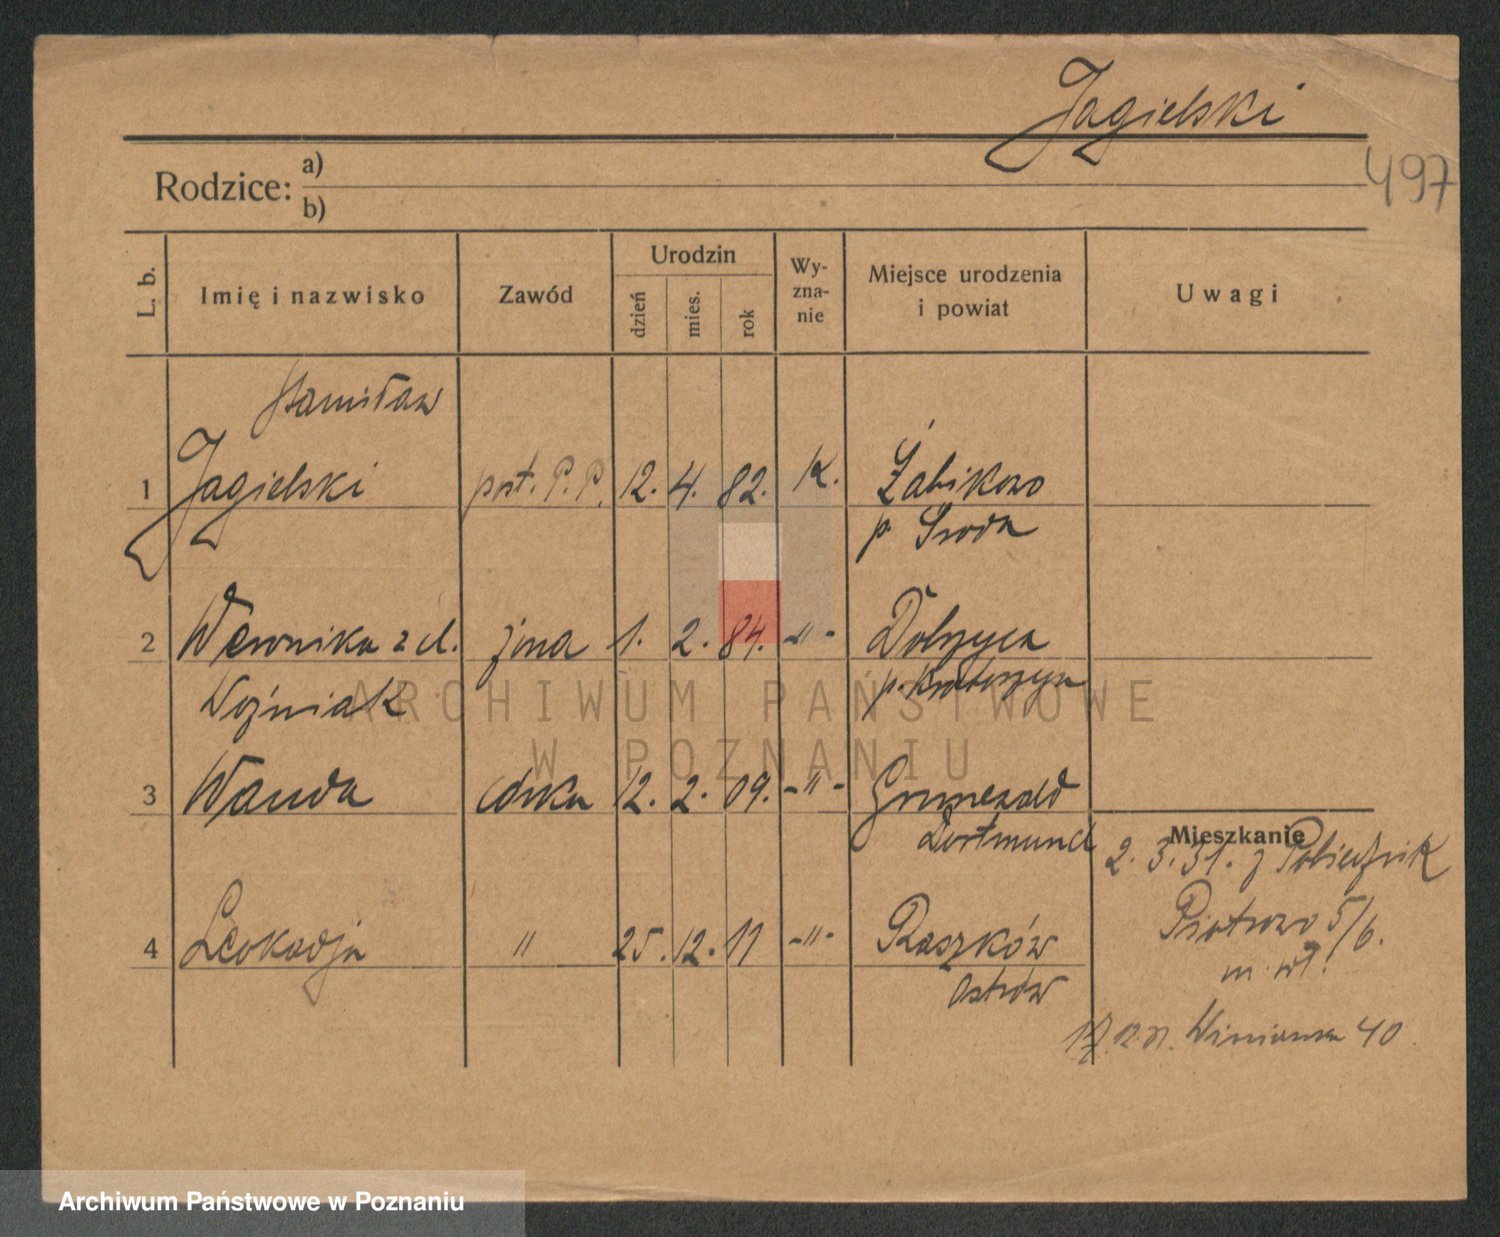 Jagielski
497
Rodzice: a)
b)
L. b.
Imię i nazwisko
Zawód
Urodzin
dzień
mies.
rok
Wy-
zna-
nie
Miejsce urodzenia
i powiat
Uwagi
Stanisław
1 Jagielski post. P.P. 12. 4. 82. K. Żabikowo
p. Środa
2 Weronika z d. żona 1. 2. 84. -"- Dobrzyca
Woźniak p. Krotoszyn
3 Wanda córka 12. 2. 09. -"- Grunewald
Dortmund
Mieszkanie
2. 3. 31. z Pobiedzisk
4 Leokadja " 25. 12. 11 -"- Raszków
Ostrów
Piotrowo 5/6.
m. wł.
Winiarska 40
ARCHIWUM PAŃSTWOWE
W POZNANIU
Archiwum Państwowe w Poznaniu